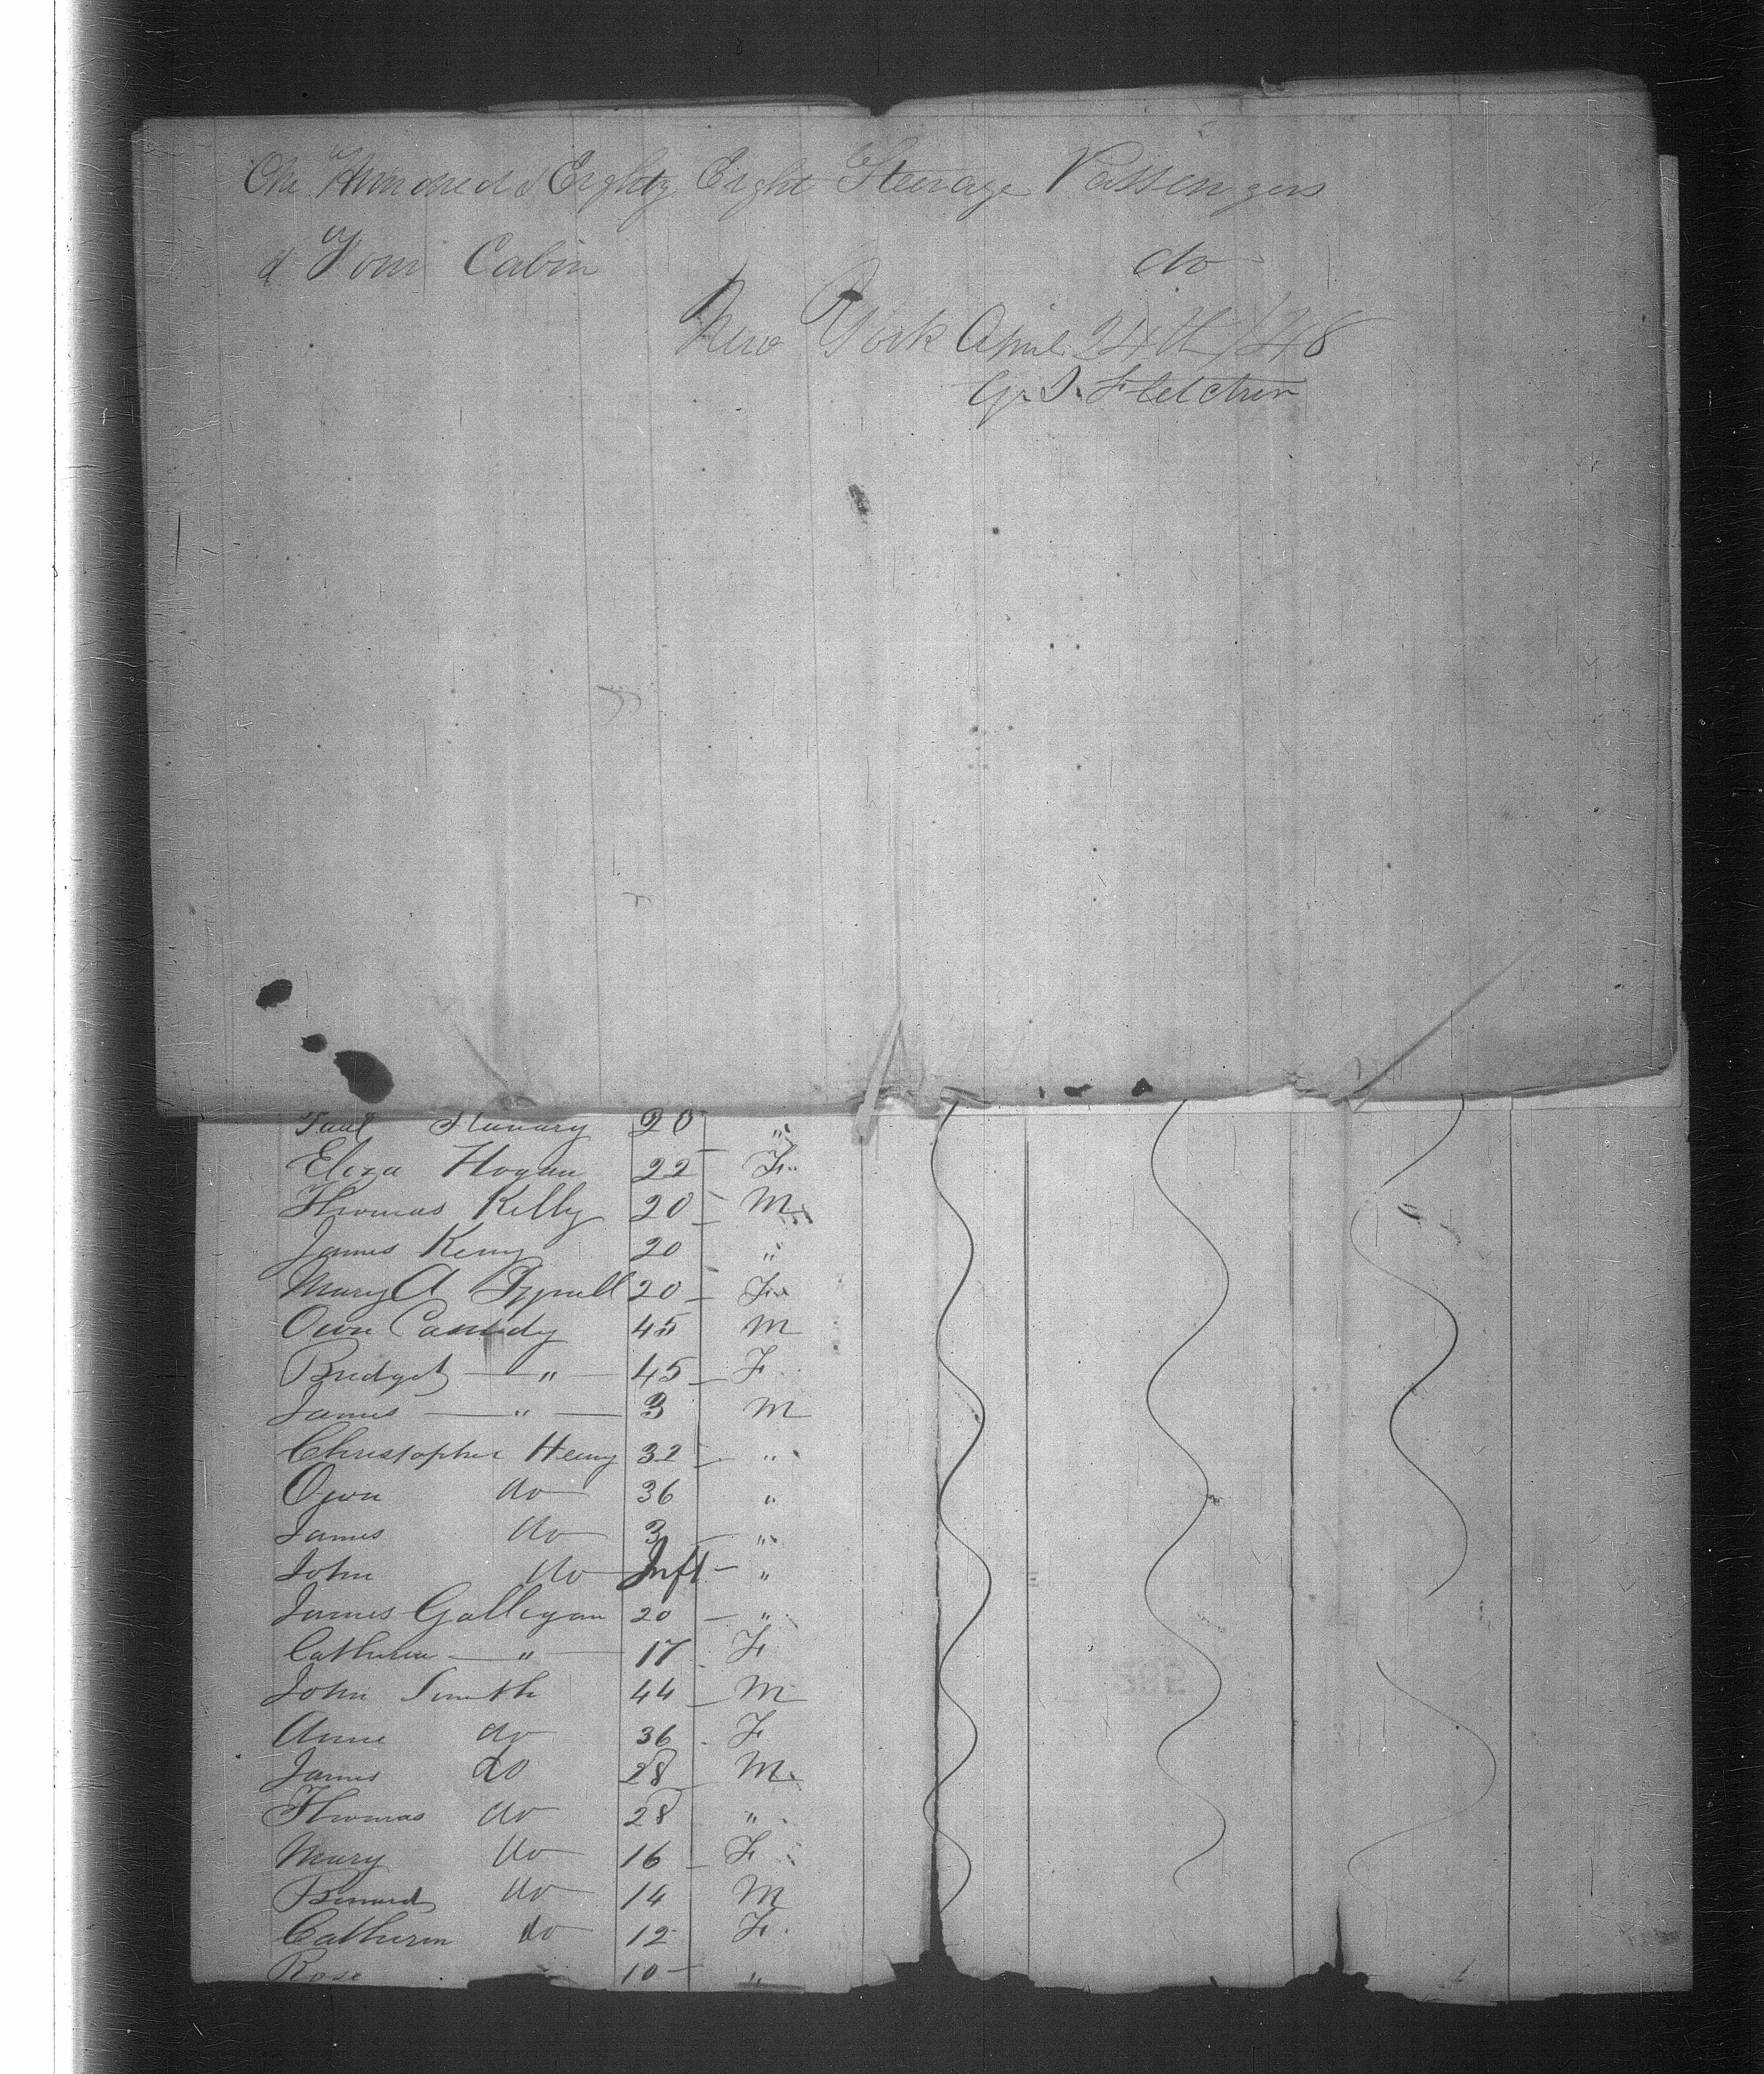 One Hundred & Eighty Eight Steerage Passengers
& Four Cabin do
New York April 24th /48
G. D. Fletcher
Paul 20 "
Eliza Hogan 22 F
Thomas Kelly 20 M
James Kenny 20 "
Mary A Tyrrell 20 F
Owen Cassidy 45 M
Bridget " 45 F
James " 3 M
Christopher Henry 32 "
Owen do 36 "
James do 3 "
John do Inft "
James Galligan 20 "
Catherin " 17 F
John Smith 44 M
Anne do 36 F
James do 28 M
Thomas do 28 "
Mary do 16 F
Bernard do 14 M
Catherin do 12 F
Rose 10 "